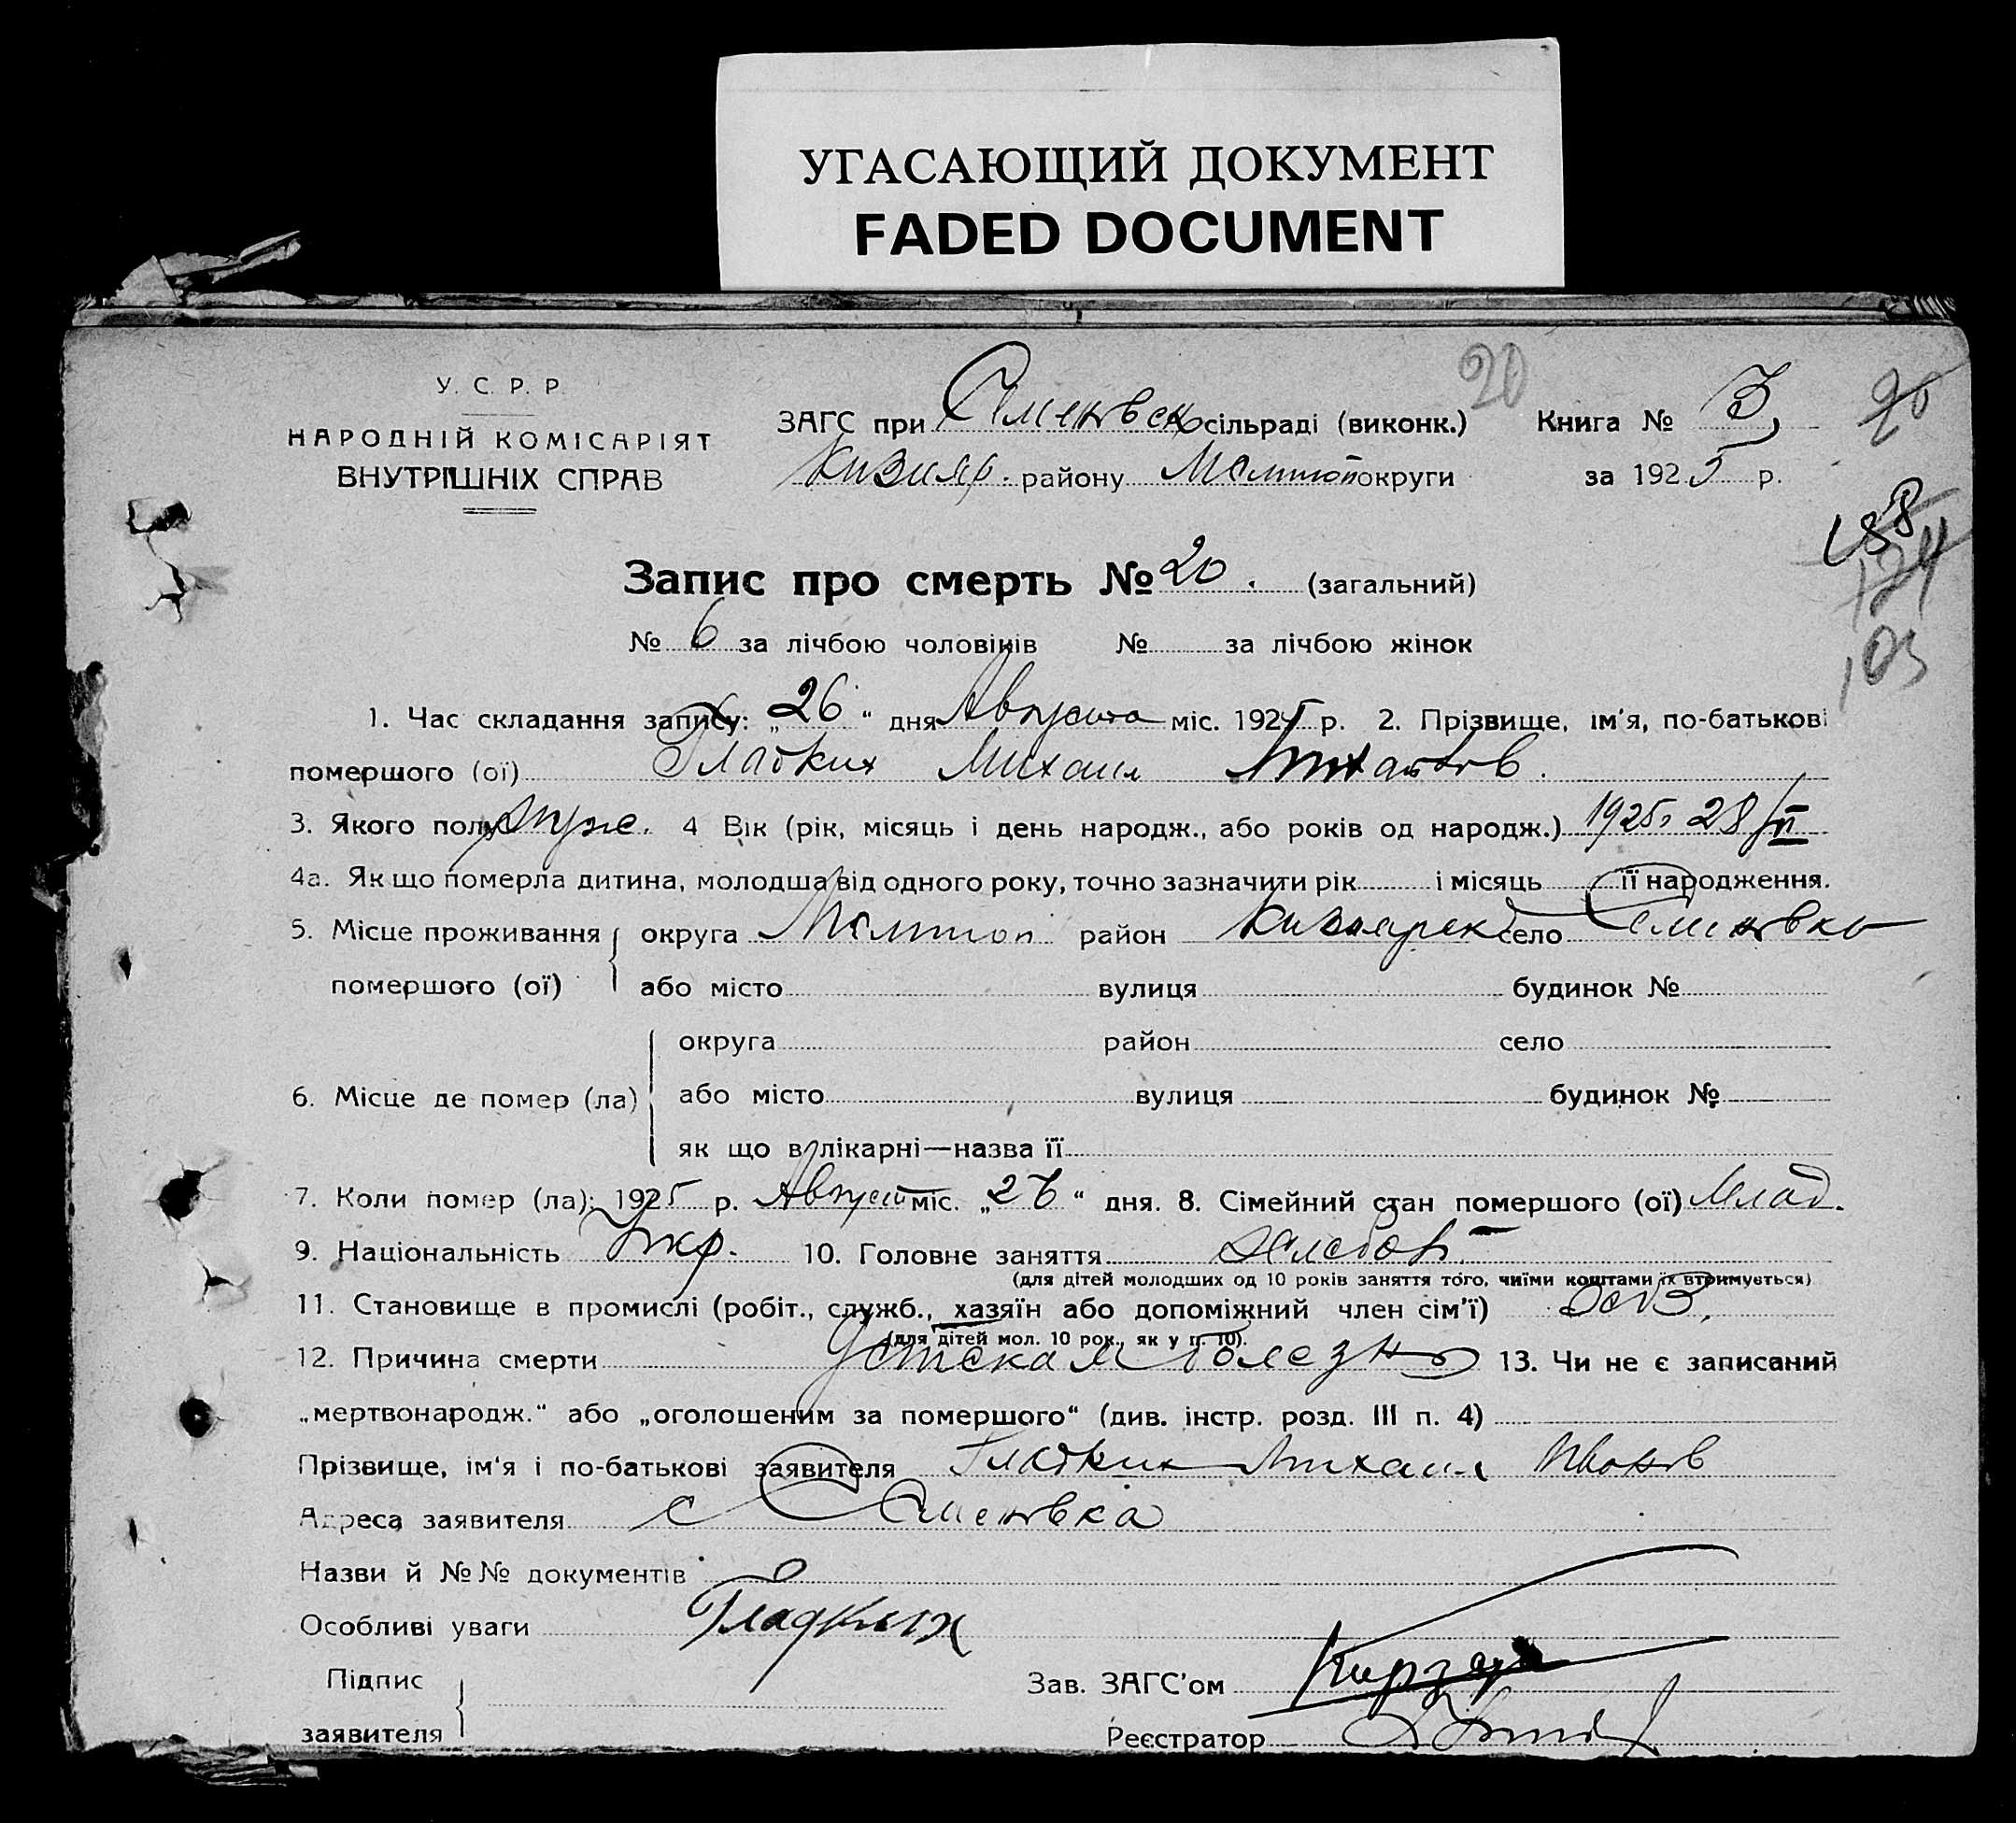 УГАСАЮЩИЙ ДОКУМЕНТ
FADED DOCUMENT
20
У. С. Р. Р.
НАРОДНІЙ КОМІСАРІЯТ
ВНУТРІШНІХ СПРАВ
ЗАГС при Семеновск сільраді (виконк.)
Кизияр. району Мелитоп округи
Книга № 3,
за 1925 р.
20
158
174
103
Запис про смерть № 20. (загальний)
№ 6 за лічбою чоловіків № за лічбою жінок
1. Час складання запису: „26“ дня Августа міс. 1925 р. 2. Прізвище, ім'я, по-батькові
помершого (ої) Гладких Михаил
3. Якого полу муже. 4 Вік (рік, місяць і день народж., або років од народж.) 1925, 28/VI
4а. Як що померла дитина, молодша від одного року, точно зазначити рік і місяць її народження.
5. Місце проживання помершого (ої) { округа Мелитоп район Кизиярск село Семеновка
або місто вулиця будинок №
6. Місце де помер (ла) округа район село
або місто вулиця будинок №
як що в лікарні—назва її
7. Коли помер (ла): 1925 р. Август міс. „26“ дня. 8. Сімейний стан помершого (ої) Млад.
9. Національність Укр. 10. Головне заняття хлебор.
(для дітей молодших од 10 років заняття того, чиїми коштами їх втримується)
11. Становище в промислі (робіт., служб., хазяїн або допоміжний член сім'ї)
(для дітей мол. 10 рок., як у п. 10).
12. Причина смерти Детская болезнь 13. Чи не є записаний
„мертвонародж.“ або „оголошеним за помершого“ (див. інстр. розд. III п. 4)
Прізвище, ім'я і по-батькові заявителя Гладких Михаил Иванов
Адреса заявителя с Семеновка
Назви й №№ документів
Особливі уваги
Гладких
Підпис заявителя
Зав. ЗАГС'ом
Реєстратор